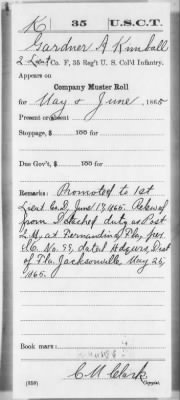 K | 35 | U.S.C.T.
Gardner A Kimball
2 Lieut Co. F, 35 Reg't U. S. Col'd Infantry.
Appears on
Company Muster Roll
for May & June, 1865
Present or absent
Stoppage, $ 100 for
Due Gov't, $ 100 for
Remarks: Promoted to 1st
Lieut Co. D, June 17, 1865. Relieved
from Detached duty as Post
at Fernandina Fla. per
S.O. No. 99, dated Hdqurs, Dist
of Fla. Jacksonville May 25,
1865.
Book mark:
(358)
C. M. Clark
Copyist.